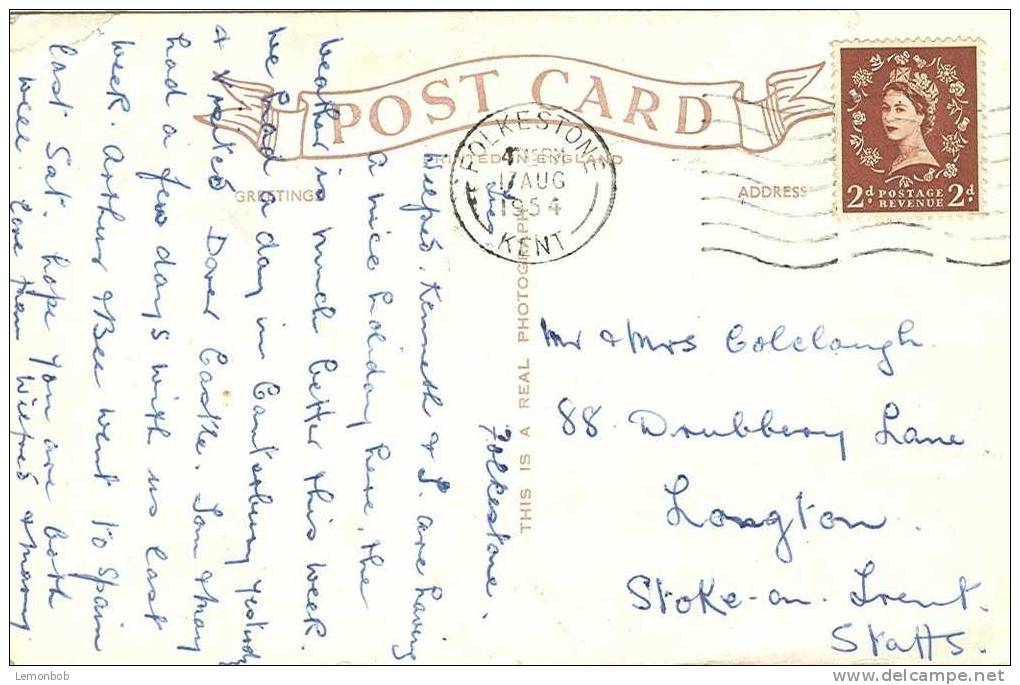 POST CARD
PRINTED IN ENGLAND
GREETINGS
ADDRESS
THIS IS A REAL PHOTOGRAPH
FOLKESTONE
17 AUG
1954
KENT
2d POSTAGE 2d
REVENUE
Folkestone.
Tues
Wilfred, Kenneth & I. are having
a nice holiday here, the
weather is much better this week.
We had a day in Canterbury yesterday
& visited Dover Castle. Tom & May
had a few days with us last
week. Arthur & Bee went to Spain
last Sat. hope you are both
well. love from Wilfred & Mary
Mr & Mrs Colclough.
88. Drubbery Lane
Longton.
Stoke-on-Trent.
Staffs.
Lemonbob
delcampe.net